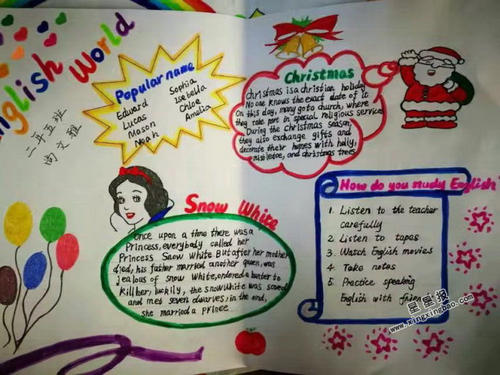 English World
二年五班
尚文雅
Popular name
Edward Sophia
Lucas Isabella
Mason Chloe
Noah Amelia
Christmas
Christmas is a christian holiday
No one knows the exact date of it
On this day, many go to church, where
they take part in special religious service
During the Christmas season,
they also exchange gifts and
decorate their homes with holly,
mistletoe, and christmas trees.
Snow White
Once upon a time there was a
Princess, everybody called her
Princess Snow White But after her mother
died, his father married another queen, was
jealous of snow White, ordered a hunter to
kill her, luckily, the snow White was saved
and met seven dwarves, in the end,
she married a prince
How do you study English
1 Listen to the teacher
carefully
2 Listen to tapes
3 Watch English movies
4 Take notes
5 Practice speaking
English with
星星报
www.xingxingbao.com